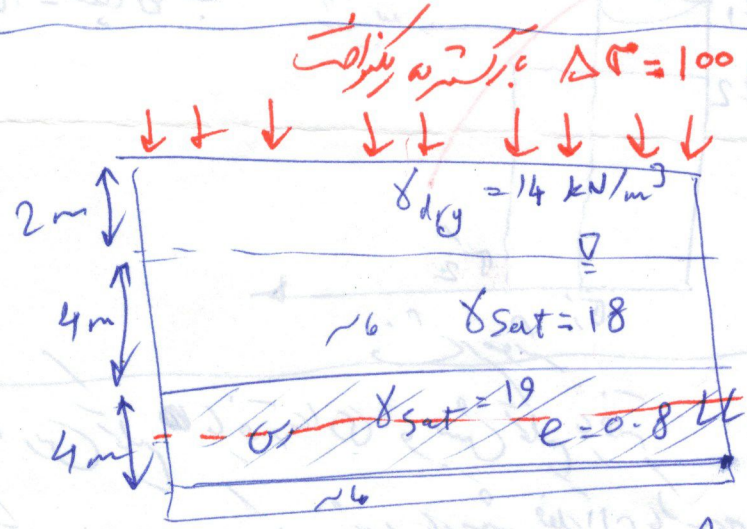 بار گسترده یکنواخت Δσ = 100
2m
γdry = 14 kN/m³
4m
ماسه γSat = 18
4m
γSat = 19
e = 0.8 LL
ماسه